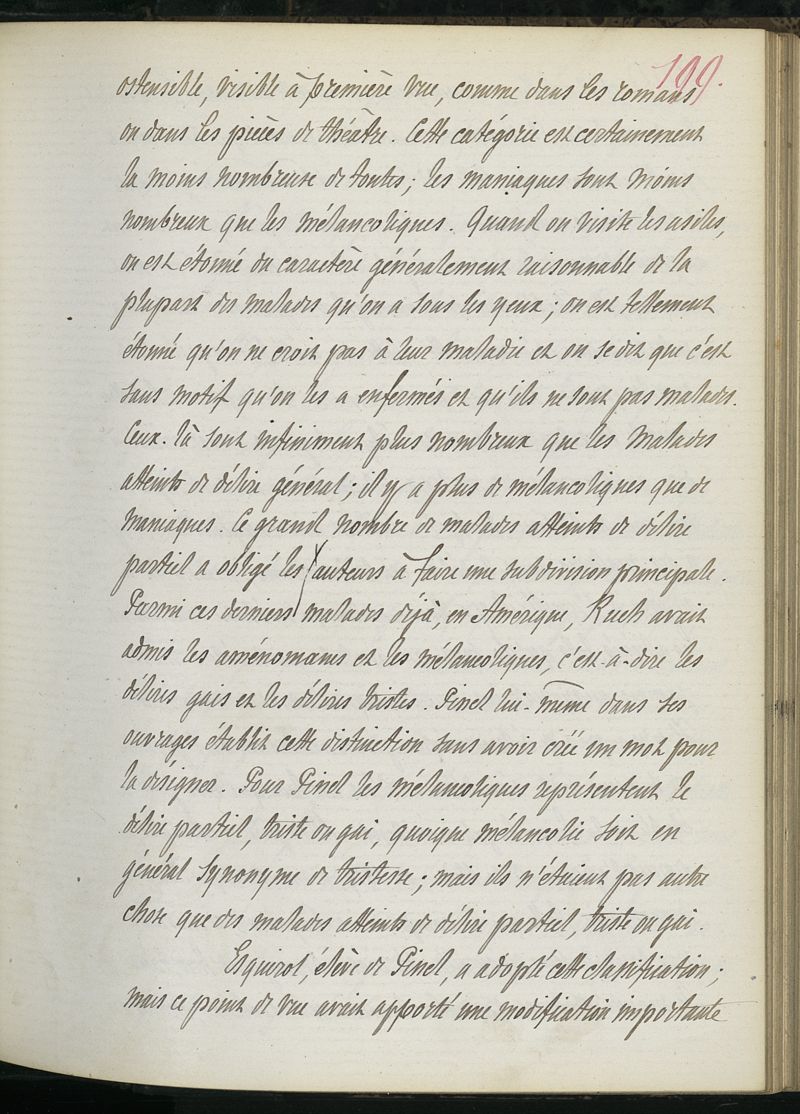 199.
ostensible, visible à première vue, comme dans les romans
ou dans les pièces de théâtre. Cette catégorie est certainement
la moins nombreuse de toutes; les maniaques sont moins
nombreux que les mélancoliques. Quand on visite les asiles,
on est étonné du caractère généralement raisonnable de la
plupart des malades qu'on a sous les yeux; on est tellement
étonné qu'on ne croit pas à leur maladie et on se dit que c'est
sans motif qu'on les a enfermés et qu'ils ne sont pas malades.
Ceux-là sont infiniment plus nombreux que les malades
atteints de délire général; il y a plus de mélancoliques que de
maniaques. Ce grand nombre de malades atteints de délire
partiel a obligé les auteurs à faire une subdivision principale.
Parmi ces derniers malades déjà, en Amérique, Rush avait
admis les aménomanes et les mélancoliques, c'est-à-dire les
délires gais et les délires tristes. Pinel lui-même dans ses
ouvrages établit cette distinction sans avoir créé un mot pour
la désigner. Pour Pinel les mélancoliques représentent le
délire partiel, triste ou gai, quoique mélancolie soit en
général synonyme de tristesse; mais ils n'étaient pas autre
chose que des malades atteints de délire partiel, triste ou gai.
Esquirol, élève de Pinel, a adopté cette classification;
mais ce point de vue avait apporté une modification importante